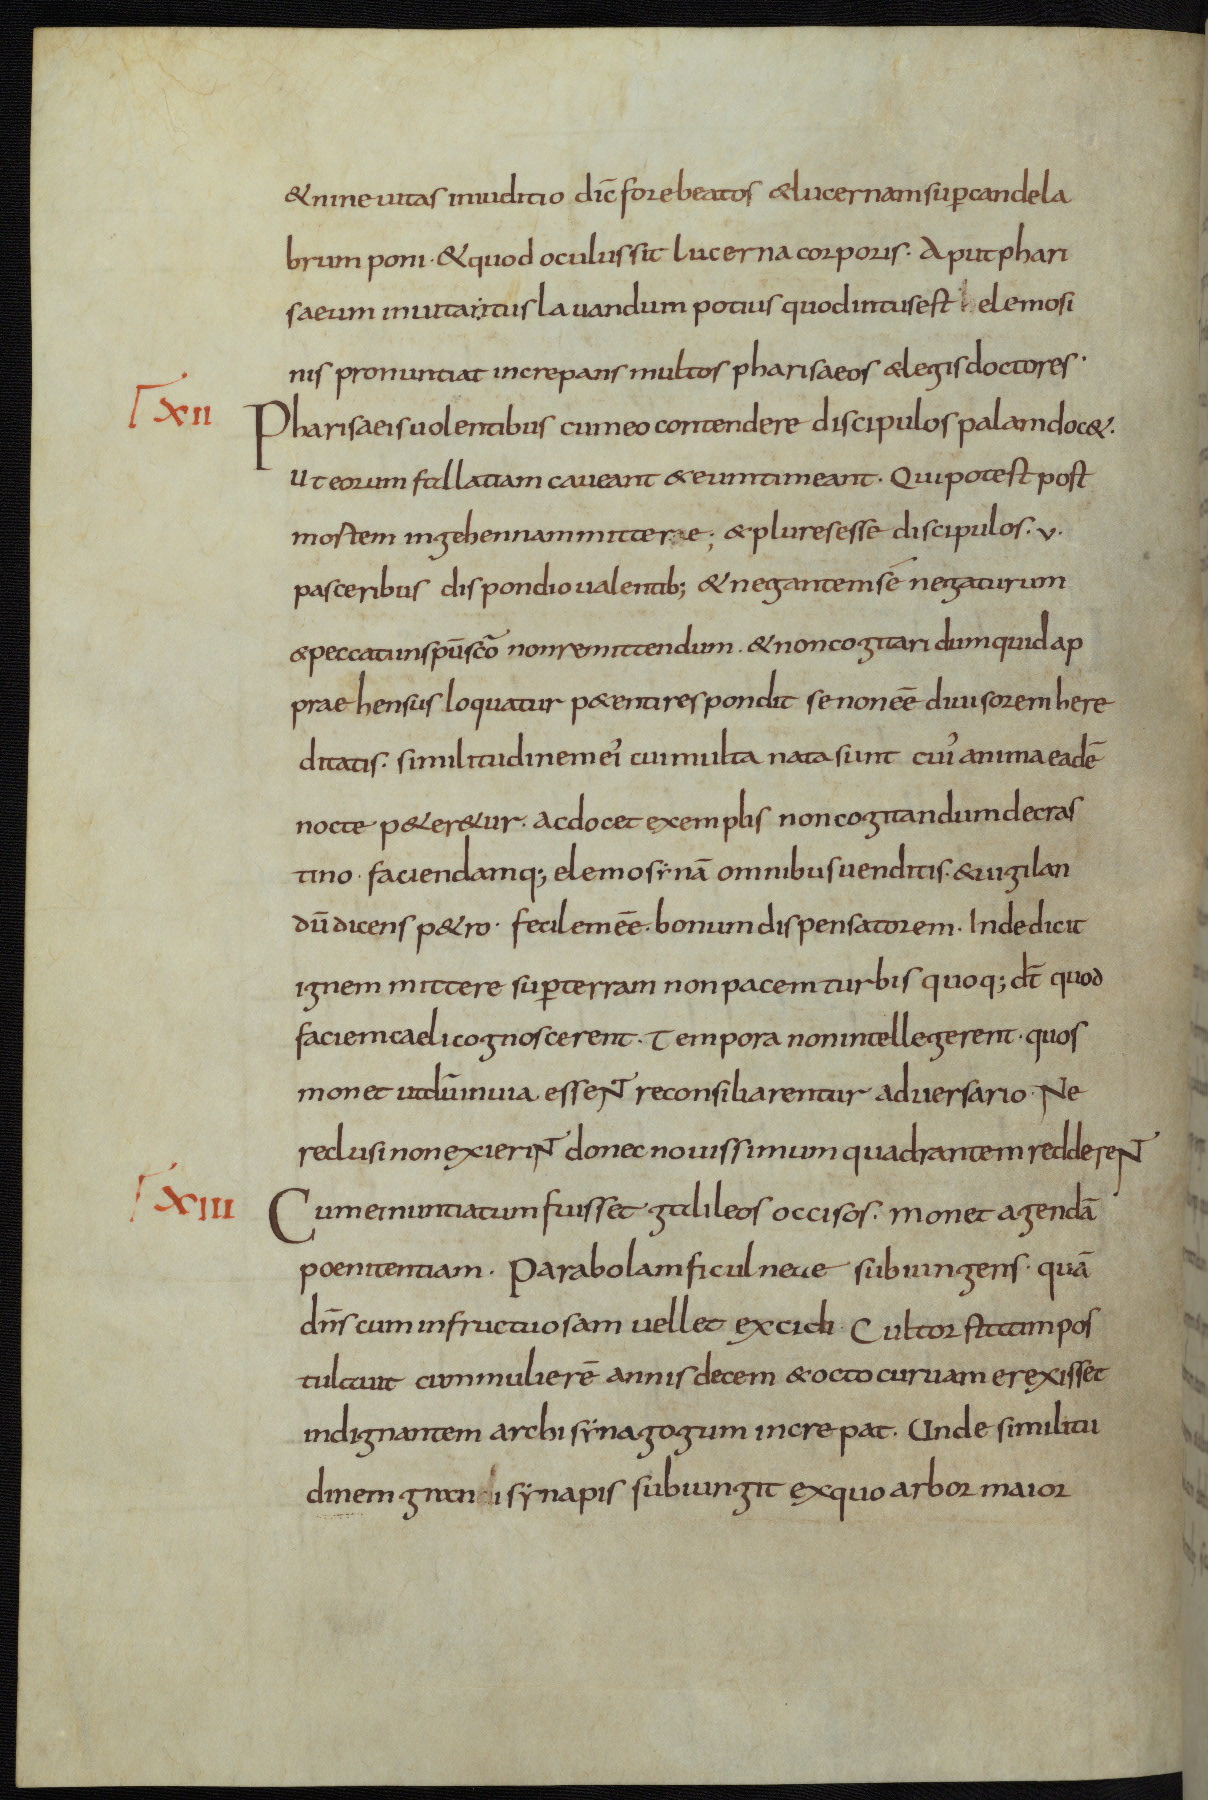 &nineuitas iniudicio dic̄ fore beatos &lucernam sup̱ candela
brum poni· &quod oculus sit lucerna corporis· Aput phari
saeum inuitatus lauandum potius quod intus est elemosi
nis pronuntiat increpans multos pharisaeos & legis doctores·
XII
Pharisaeis uolentibus cum eo contendere discipulos palam doc&.
Ut eorum fallatiam caueant & eum timeant· Qui potest post
mortem in gehennam mittere; & plures esse discipulos· v·
passeribus dispondio ualentib; & negantem sé negaturum
& peccatum sp̄u sc̄o non remittendum· & non cogitari dum quid ap
praehensus loquatur p&enti respondit se non eē diuisorem here
ditatis· similitudinem ei' cui multa nata sunt cui' anima eadē
nocte p&er&ur· ac docet exemplis non cogitandum de cras
tino· faciendamq; elemosẏnā omnibus uenditis· & uigilan
dū dicens p&ro· fecilem eē· bonum dispensatorem· Inde dicit
ignem mittere sup̱ terram non pacem turbis quoq; dt̄ quod
faciem caeli cognoscerent· Tempora non intellegerent· quos
monet ut dū in uia esseNT reconsiliarentur aduersario· Ne
reclusi non exieriNT donec nouissimum quadrantem reddereNT
XIII
Cum ei nuntiatum fuisset galileos occisos· monet agendā
poenitentiam· Parabolam ficulneae subiungens· quā
dn̄s cum infructuosam uellet excidi· Cultor statim pos
tulauit cum mulierē annis decem & octo curuam erexisset
indignantem archisẏnagogum increpat· Unde similitu
dinem grani sẏnapis subiungit ex quo arbor maior